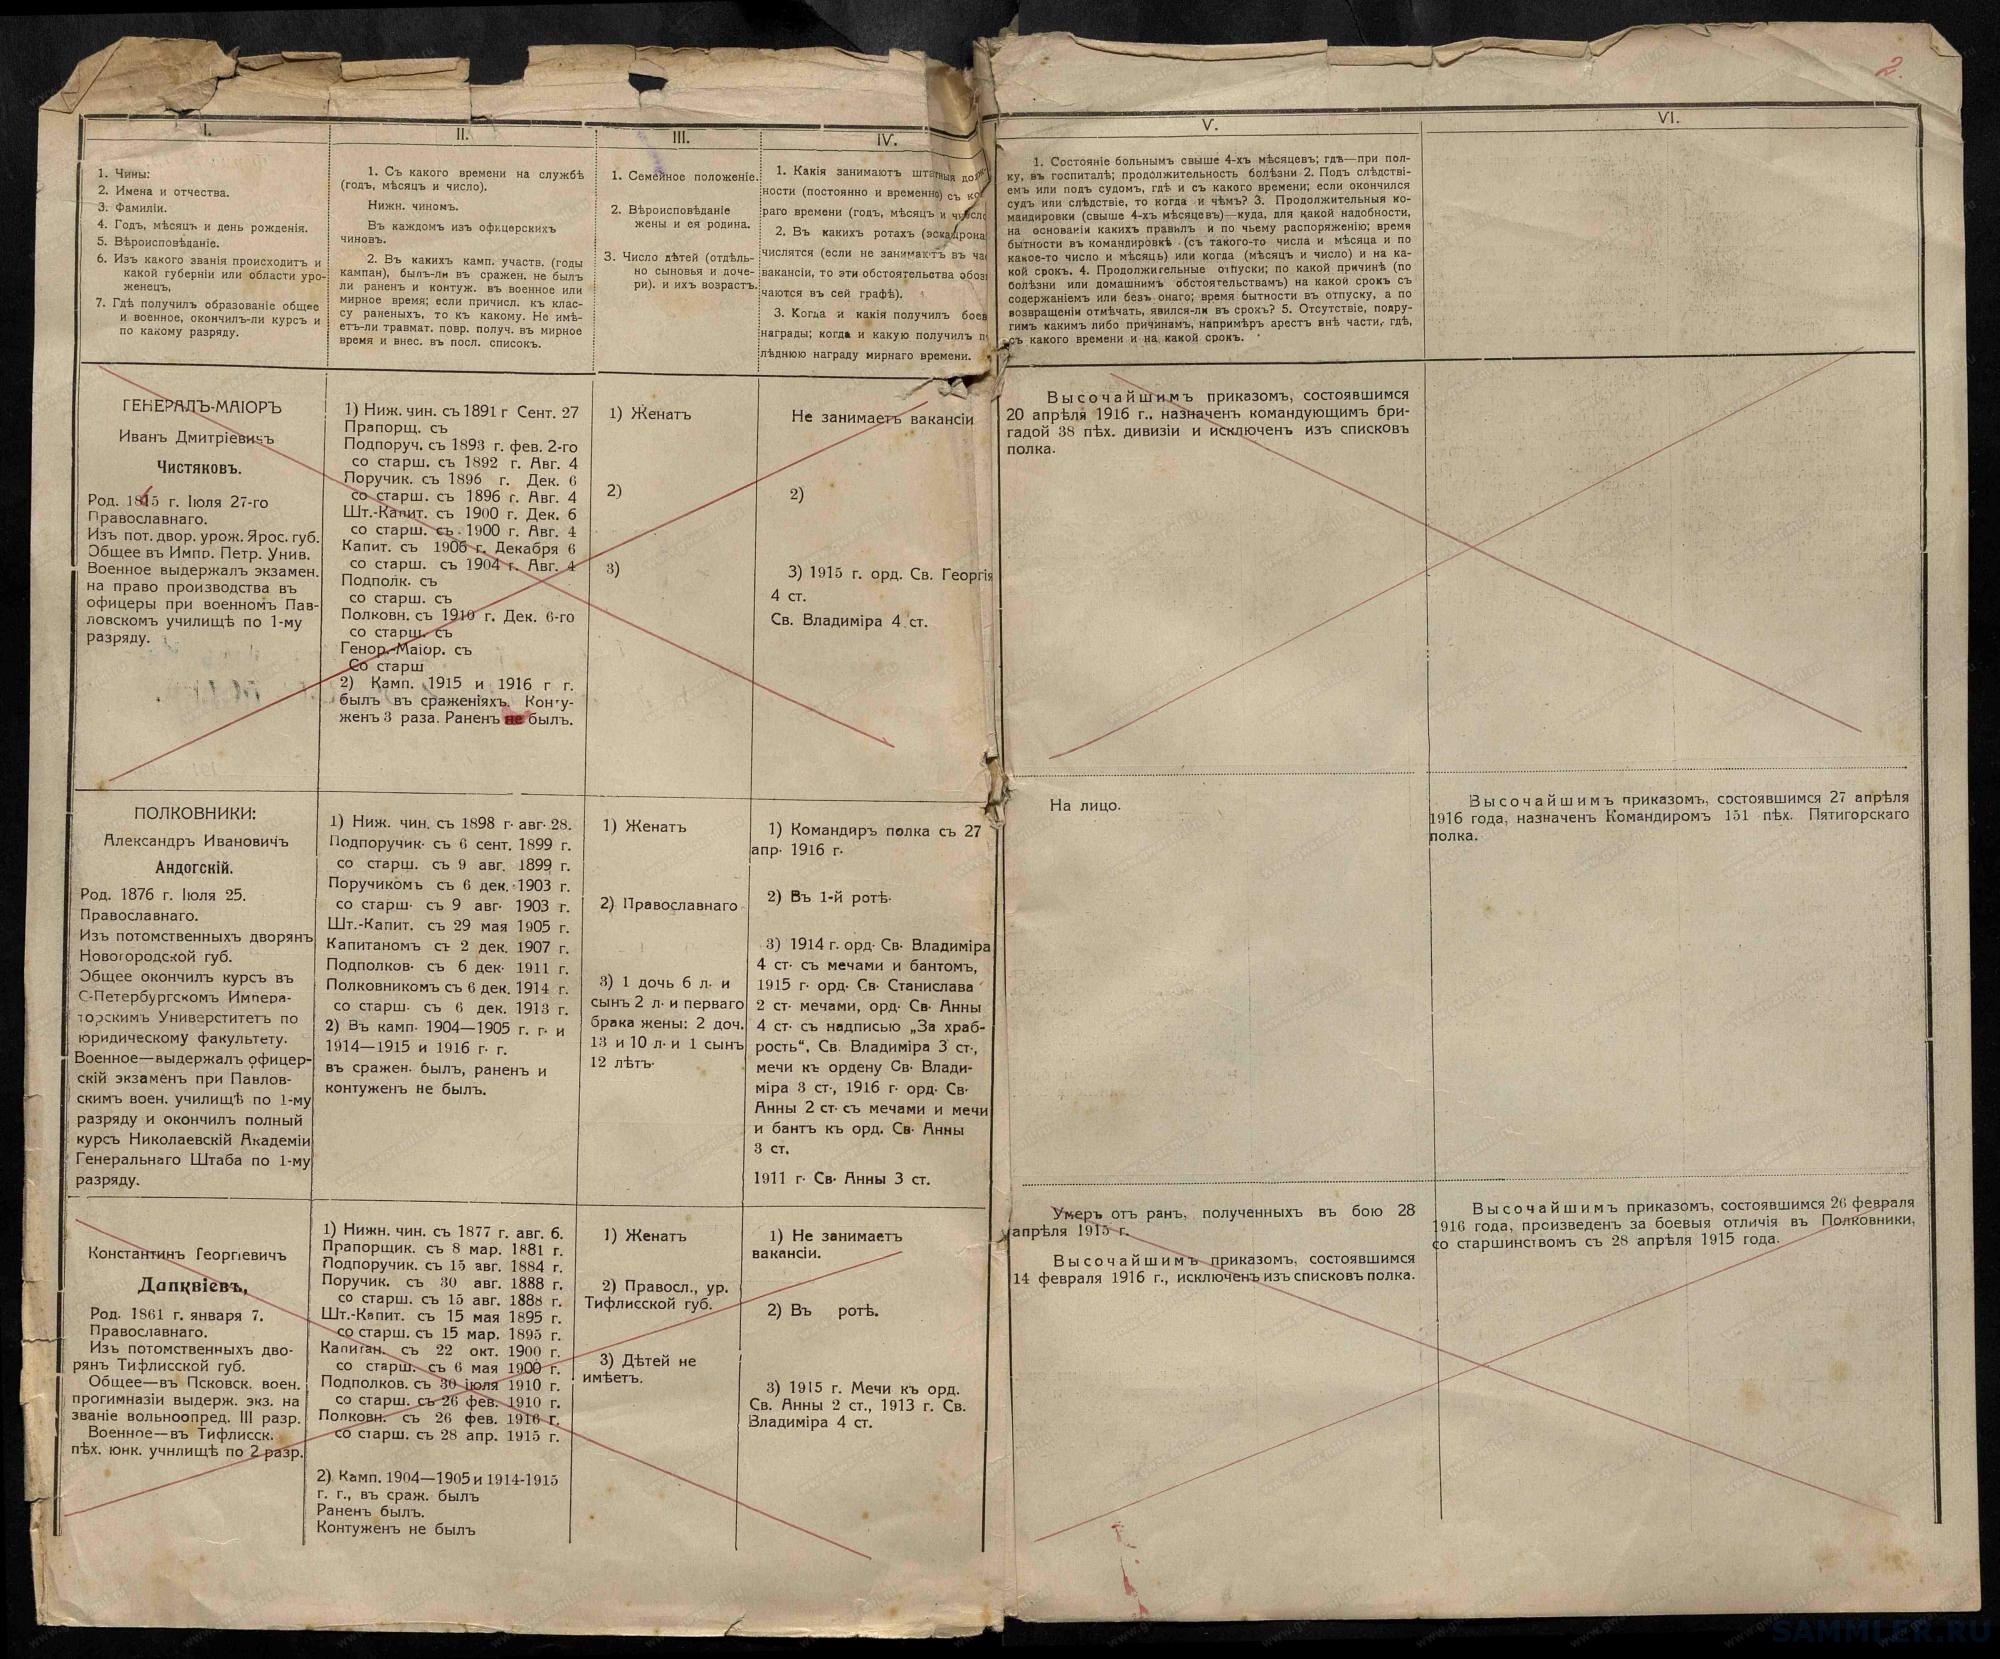 2.
I.
1. Чины:
2. Имена и отчества.
3. Фамиліи.
4. Годъ, мѣсяцъ и день рожденія.
5. Вѣроисповѣданіе.
6. Изъ какого званія происходитъ и
какой губерніи или области уро-
женецъ,
7. Гдѣ получилъ образованіе общее
и военное, окончилъ-ли курсъ и
по какому разряду.
II.
1. Съ какого времени на службѣ
(годъ, мѣсяцъ и число).
Нижн. чиномъ.
Въ каждомъ изъ офицерскихъ
чиновъ.
2. Въ какихъ камп. участв. (годы
кампан), былъ-ли въ сражен. не былъ
ли раненъ и контуж. въ военное или
мирное время; если причисл. къ клас-
су раненыхъ, то къ какому. Не имѣ-
етъ-ли травмат. повр. получ. въ мирное
время и внес. въ посл. списокъ.
III.
1. Семейное положеніе.
2. Вѣроисповѣданіе
жены и ея родина.
3. Число дѣтей (отдѣль-
но сыновья и доче-
ри). и ихъ возрастъ.
IV.
1. Какія занимаютъ штатныя
ности (постоянно и временно) съ ко
раго времени (годъ, мѣсяцъ и число
2. Въ какихъ ротахъ (эскадрона
числятся (если не занимаютъ въ ча
вакансіи, то эти обстоятельства обоз
чаются въ сей графѣ).
3. Когда и какія получилъ боев
награды; когда и какую получилъ п
лѣднюю награду мирнаго времени.
V.
1. Состояніе больнымъ свыше 4-хъ мѣсяцевъ; гдѣ—при пол-
ку, въ госпиталѣ; продолжительность болѣзни 2. Подъ слѣдстві-
емъ или подъ судомъ, гдѣ и съ какого времени; если окончился
судъ или слѣдствіе, то когда и чѣмъ? 3. Продолжительныя ко-
мандировки (свыше 4-хъ мѣсяцевъ)—куда, для какой надобности,
на основаніи какихъ правилъ и по чьему распоряженію; время
бытности въ командировкѣ (съ такого-то числа и мѣсяца и по
какое-то число и мѣсяцъ) или когда (мѣсяцъ и число) и на ка-
кой срокъ. 4. Продолжительные отпуски; по какой причинѣ (по
болѣзни или домашнимъ обстоятельствамъ) на какой срокъ съ
содержаніемъ или безъ онаго; время бытности въ отпуску, а по
возвращеніи отмѣчать, явился-ли въ срокъ? 5. Отсутствіе, подру-
гимъ какимъ либо причинамъ, напримѣръ арестъ внѣ части, гдѣ,
съ какого времени и на какой срокъ.
VI.
ГЕНЕРАЛЪ-МАІОРЪ
Иванъ Дмитріевичъ
Чистяковъ.
Род. 1865 г. Іюля 27-го
Православнаго.
Изъ пот. двор. урож. Ярос. губ.
Общее въ Импр. Петр. Унив.
Военное выдержалъ экзамен.
на право производства въ
офицеры при военномъ Пав-
ловскомъ училищѣ по 1-му
разряду.
1) Ниж. чин. съ 1891 г Сент. 27
Прапорщ. съ
Подпоруч. съ 1893 г. фев. 2-го
со старш. съ 1892 г. Авг. 4
Поручик. съ 1896 г. Дек. 6
со старш. съ 1896 г. Авг. 4
Шт.-Капит. съ 1900 г. Дек. 6
со старш. съ 1900 г. Авг. 4
Капит. съ 1906 г. Декабря 6
со старш. съ 1904 г. Авг. 4
Подполк. съ
со старш. съ
Полковн. съ 1910 г. Дек. 6-го
со старш. съ
Генор.-Маіор. съ
Со старш
2) Камп. 1915 и 1916 г г.
былъ въ сраженіяхъ. Конту-
женъ 3 раза. Раненъ не былъ.
1) Женатъ
2)
3)
Не занимаетъ вакансіи
2)
3) 1915 г. орд. Св. Георгія
4 ст.
Св. Владиміра 4 ст.
Высочайшимъ приказомъ, состоявшимся
20 апрѣля 1916 г., назначенъ командующимъ бри-
гадой 38 пѣх. дивизіи и исключенъ изъ списковъ
полка.
ПОЛКОВНИКИ:
Александръ Ивановичъ
Андогскій.
Род. 1876 г. Іюля 25.
Православнаго.
Изъ потомственныхъ дворянъ
Новогородской губ.
Общее окончилъ курсъ въ
С-Петербургскомъ Импера-
торскимъ Университетъ по
юридическому факультету.
Военное—выдержалъ офицер-
скій экзаменъ при Павлов-
скимъ воен. училищѣ по 1-му
разряду и окончилъ полный
курсъ Николаевскій Академіи
Генеральнаго Штаба по 1-му
разряду.
1) Ниж. чин. съ 1898 г. авг. 28.
Подпоручик. съ 6 сент. 1899 г.
со старш. съ 9 авг. 1899 г.
Поручикомъ съ 6 дек. 1903 г.
со старш. съ 9 авг. 1903 г.
Шт.-Капит. съ 29 мая 1905 г.
Капитаномъ съ 2 дек. 1907 г.
Подполков. съ 6 дек. 1911 г.
Полковникомъ съ 6 дек. 1914 г.
со старш. съ 6 дек. 1913 г.
2) Въ камп. 1904—1905 г. г. и
1914—1915 и 1916 г. г.
въ сражен. былъ, раненъ и
контуженъ не былъ.
1) Женатъ
2) Православнаго
3) 1 дочь 6 л. и
сынъ 2 л. и перваго
брака жены: 2 доч.
13 и 10 л. и 1 сынъ
12 лѣтъ.
1) Командиръ полка съ 27
апр. 1916 г.
2) Въ 1-й ротѣ.
3) 1914 г. орд. Св. Владиміра
4 ст. съ мечами и бантомъ,
1915 г. орд. Св. Станислава
2 ст. мечами, орд. Св. Анны
4 ст. съ надписью „За храб-
рость“, Св. Владиміра 3 ст.,
мечи къ ордену Св. Влади-
міра 3 ст., 1916 г. орд. Св.
Анны 2 ст. съ мечами и мечи
и бантъ къ орд. Св. Анны
3 ст.
1911 г. Св. Анны 3 ст.
На лицо.
Высочайшимъ приказомъ, состоявшимся 27 апрѣля
1916 года, назначенъ Командиромъ 151 пѣх. Пятигорскаго
полка.
Константинъ Георгіевичъ
Дапквіевъ,
Род. 1861 г. января 7.
Православнаго.
Изъ потомственныхъ дво-
рянъ Тифлисской губ.
Общее—въ Псковск. воен.
прогимназіи выдерж. экз. на
званіе вольноопред. III разр.
Военное—въ Тифлисск.
пѣх. юнк. училищѣ по 2 разр.
1) Нижн. чин. съ 1877 г. авг. 6.
Прапорщик. съ 8 мар. 1881 г.
Подпоручик. съ 15 авг. 1884 г.
Поручик. съ 30 авг. 1888 г.
со старш. съ 15 авг. 1888 г.
Шт.-Капит. съ 15 мая 1895 г.
со старш. съ 15 мар. 1895 г.
Капитан. съ 22 окт. 1900 г.
со старш. съ 6 мая 1900 г.
Подполков. съ 30 іюля 1910 г.
со старш. съ 26 фев. 1910 г.
Полковн. съ 26 фев. 1916 г.
со старш. съ 28 апр. 1915 г.
2) Камп. 1904—1905 и 1914-1915
г. г., въ сраж. былъ
Раненъ былъ.
Контуженъ не былъ
1) Женатъ
2) Правосл., ур.
Тифлисской губ.
3) Дѣтей не
имѣетъ.
1) Не занимаетъ
вакансіи.
2) Въ ротѣ.
3) 1915 г. Мечи къ орд.
Св. Анны 2 ст., 1913 г. Св.
Владиміра 4 ст.
Умеръ отъ ранъ, полученныхъ въ бою 28
апрѣля 1915 г.
Высочайшимъ приказомъ, состоявшимся
14 февраля 1916 г., исключенъ изъ списковъ полка.
Высочайшимъ приказомъ, состоявшимся 26 февраля
1916 года, произведенъ за боевыя отличія въ Полковники,
со старшинствомъ съ 28 апрѣля 1915 года.
SAMMLER.RU